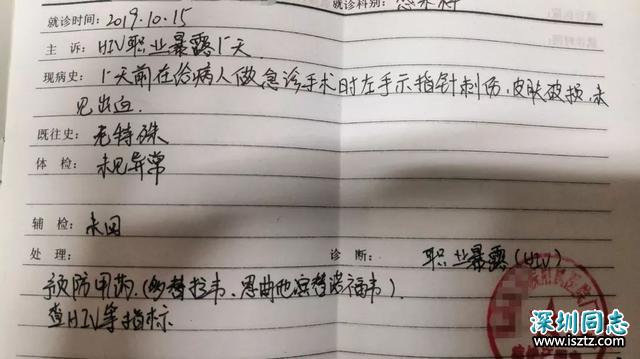 就诊时间：2019.10.15 就诊科别：感染科
主 诉：HIV职业暴露1天
现病史：1天前在给病人做急诊手术时左手示指针刺伤，皮肤破损，未
见出血.
既往史：无特殊
体 检：未见异常
辅 检：未回
处 理： 诊 断：职业暴露(HIV)
预防用药.(多替拉韦、恩曲他滨替诺福韦).
查HIV等指标
深圳同志
www.isztz.com